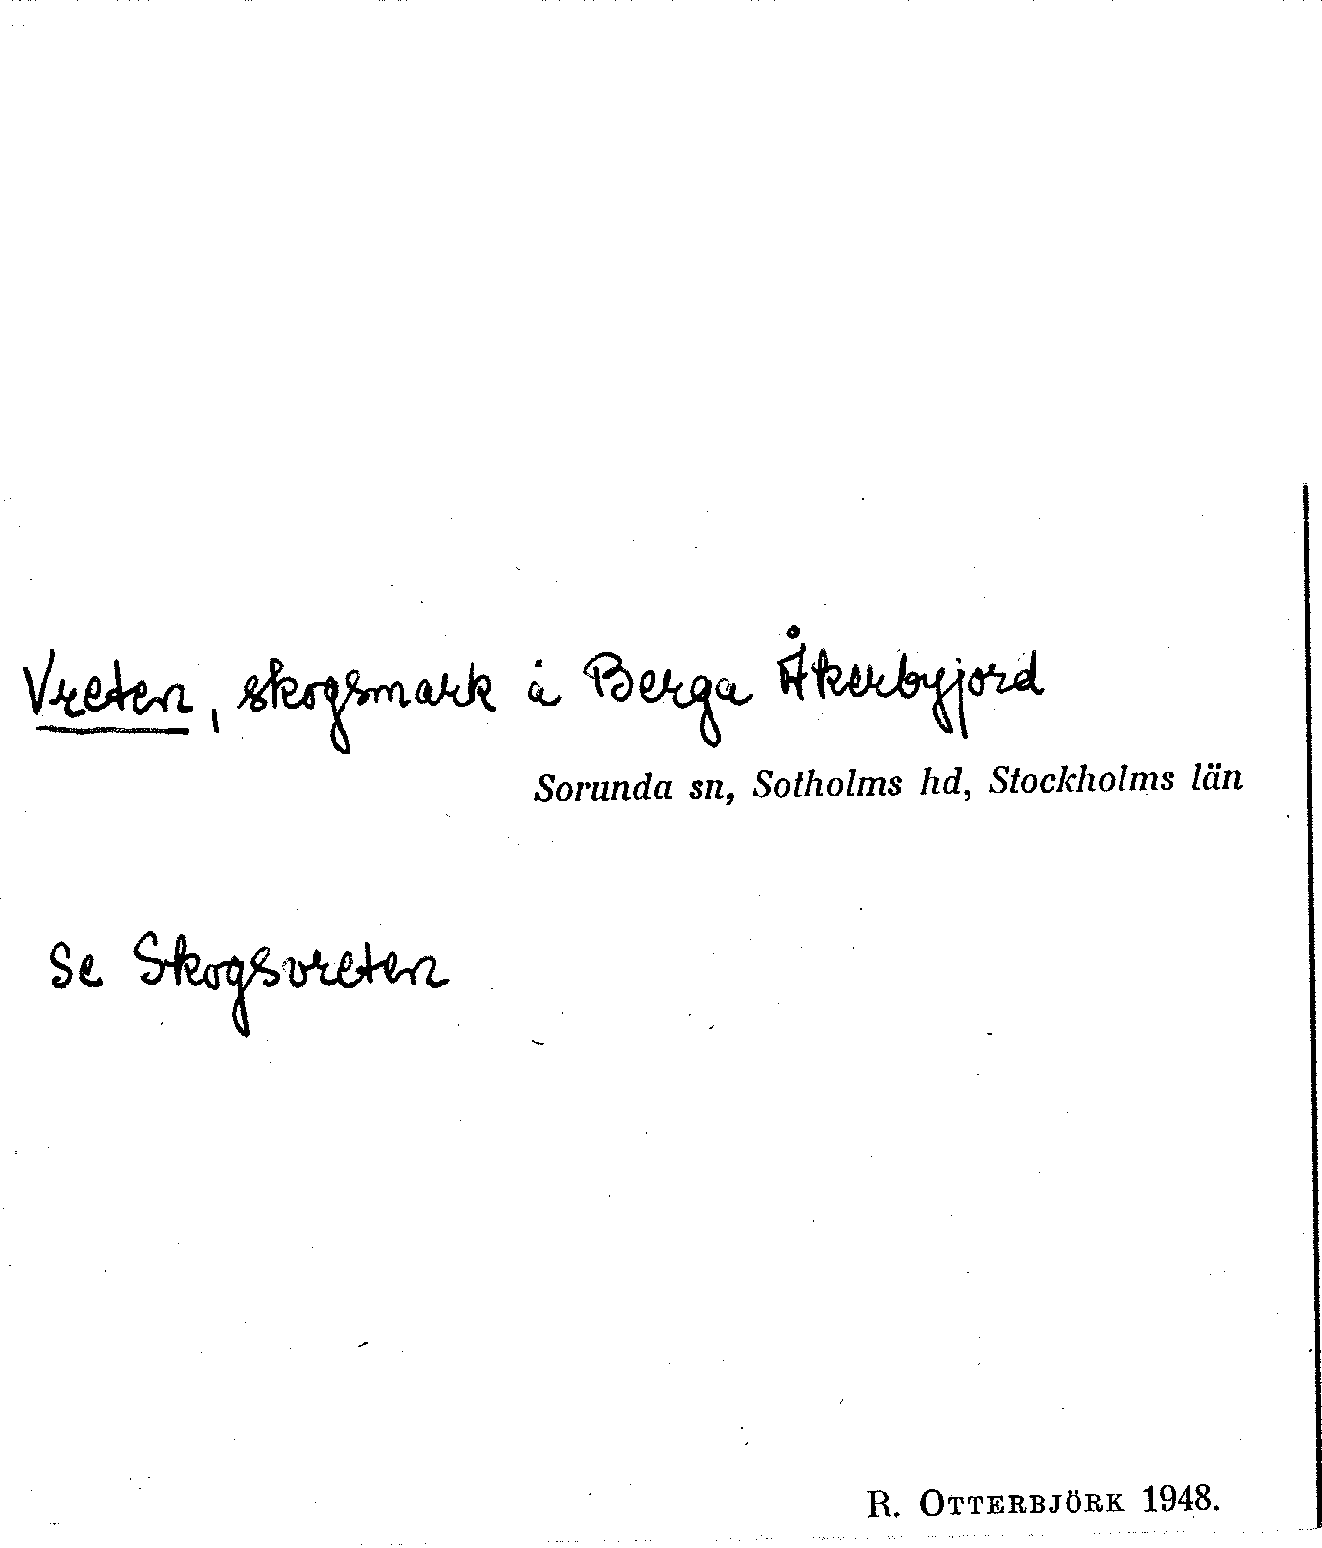 Vreten, skogsmark å Berga Åkerbyjord
Sorunda sn, Sotholms hd, Stockholms län
Se Skogsvreten
R. OTTERBJÖRK 1948.